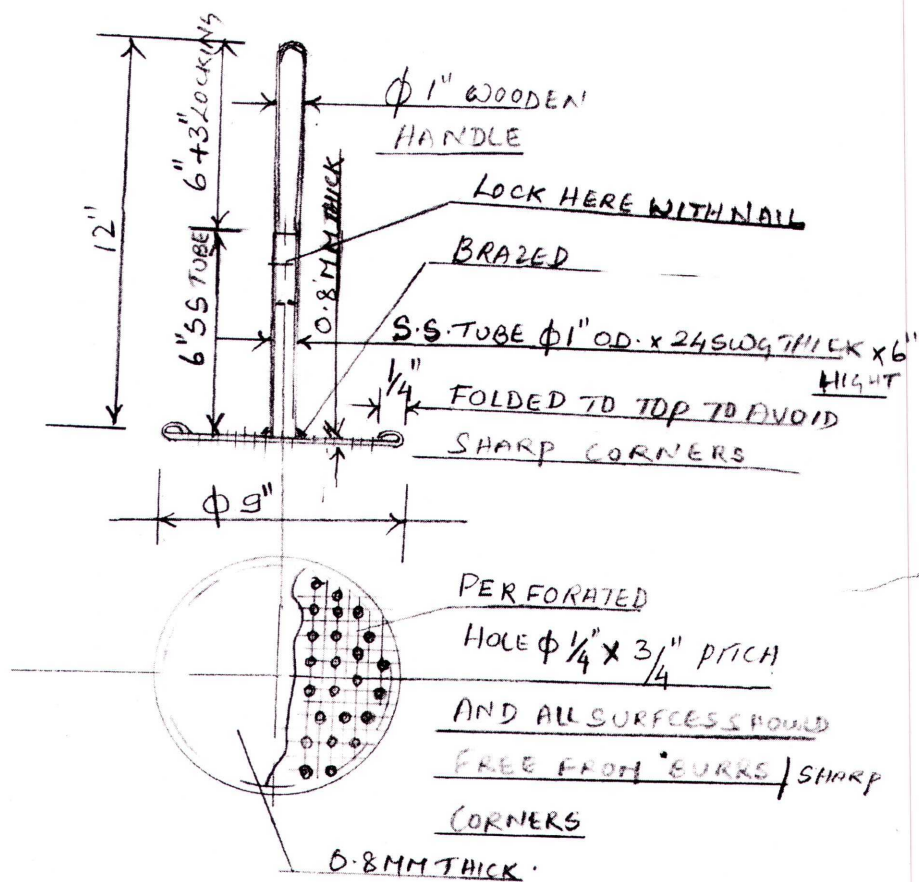 12"
6"+3"LOCKING
6"SS TUBE
0.8 MM THICK
ϕ 1" WOODEN
HANDLE
LOCK HERE WITH NAIL
BRAZED
S.S. TUBE ϕ1" O.D. x 24 SWG THICK x 6"
HIGHT
1/4"
FOLDED TO TOP TO AVOID
SHARP CORNERS
ϕ 9"
PERFORATED
HOLE ϕ 1/4" X 3/4" PITCH
AND ALL SURFCES SHOULD
FREE FROM BURRS / SHARP
CORNERS
0.8 MM THICK.